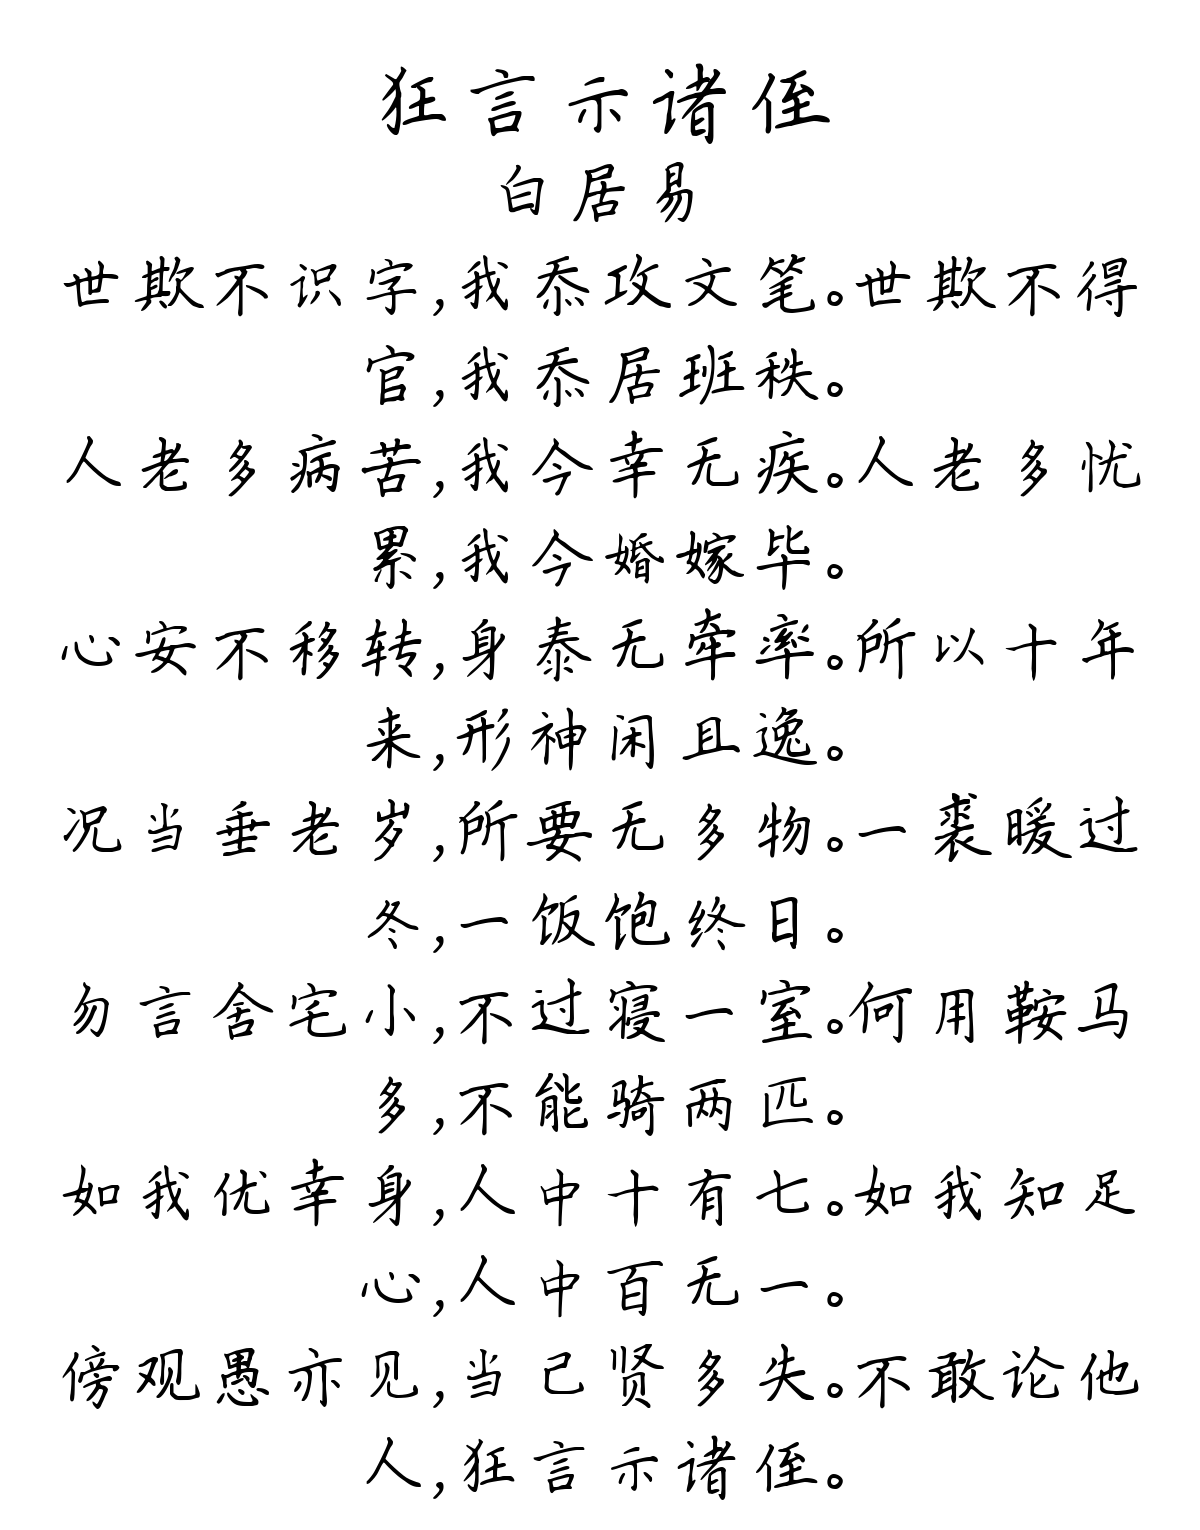 狂言示诸侄
白居易
世欺不识字,我忝攻文笔。世欺不得
官,我忝居班秩。
人老多病苦,我今幸无疾。人老多忧
累,我今婚嫁毕。
心安不移转,身泰无牵率。所以十年
来,形神闲且逸。
况当垂老岁,所要无多物。一裘暖过
冬,一饭饱终日。
勿言舍宅小,不过寝一室。何用鞍马
多,不能骑两匹。
如我优幸身,人中十有七。如我知足
心,人中百无一。
傍观愚亦见,当己贤多失。不敢论他
人,狂言示诸侄。